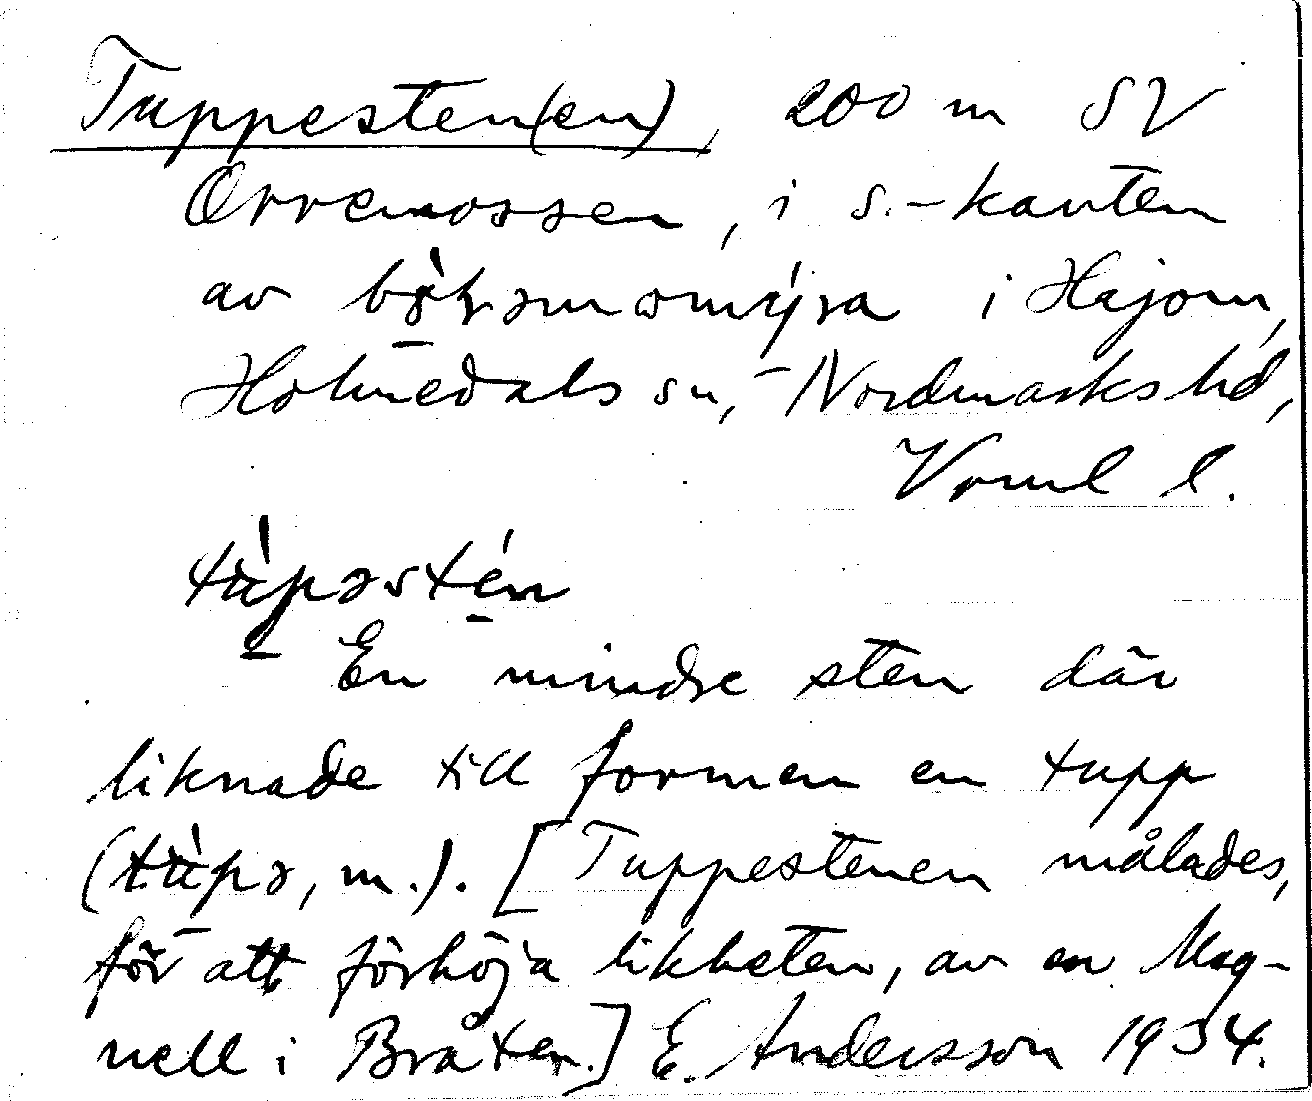 Tuppesten(en), 200 m SV
Orremossen, i s.-kanten
av i Häjom,
Holmedals sn, Nordmarks hd,
Vrml l.
tùpəstén
En mindre sten där
liknade till formen en tupp
(tùpə, m.). [Tuppestenen målades,
för att förhöja likheten, av en Mag-
nell i Bråten.] E. Andersson 1934.